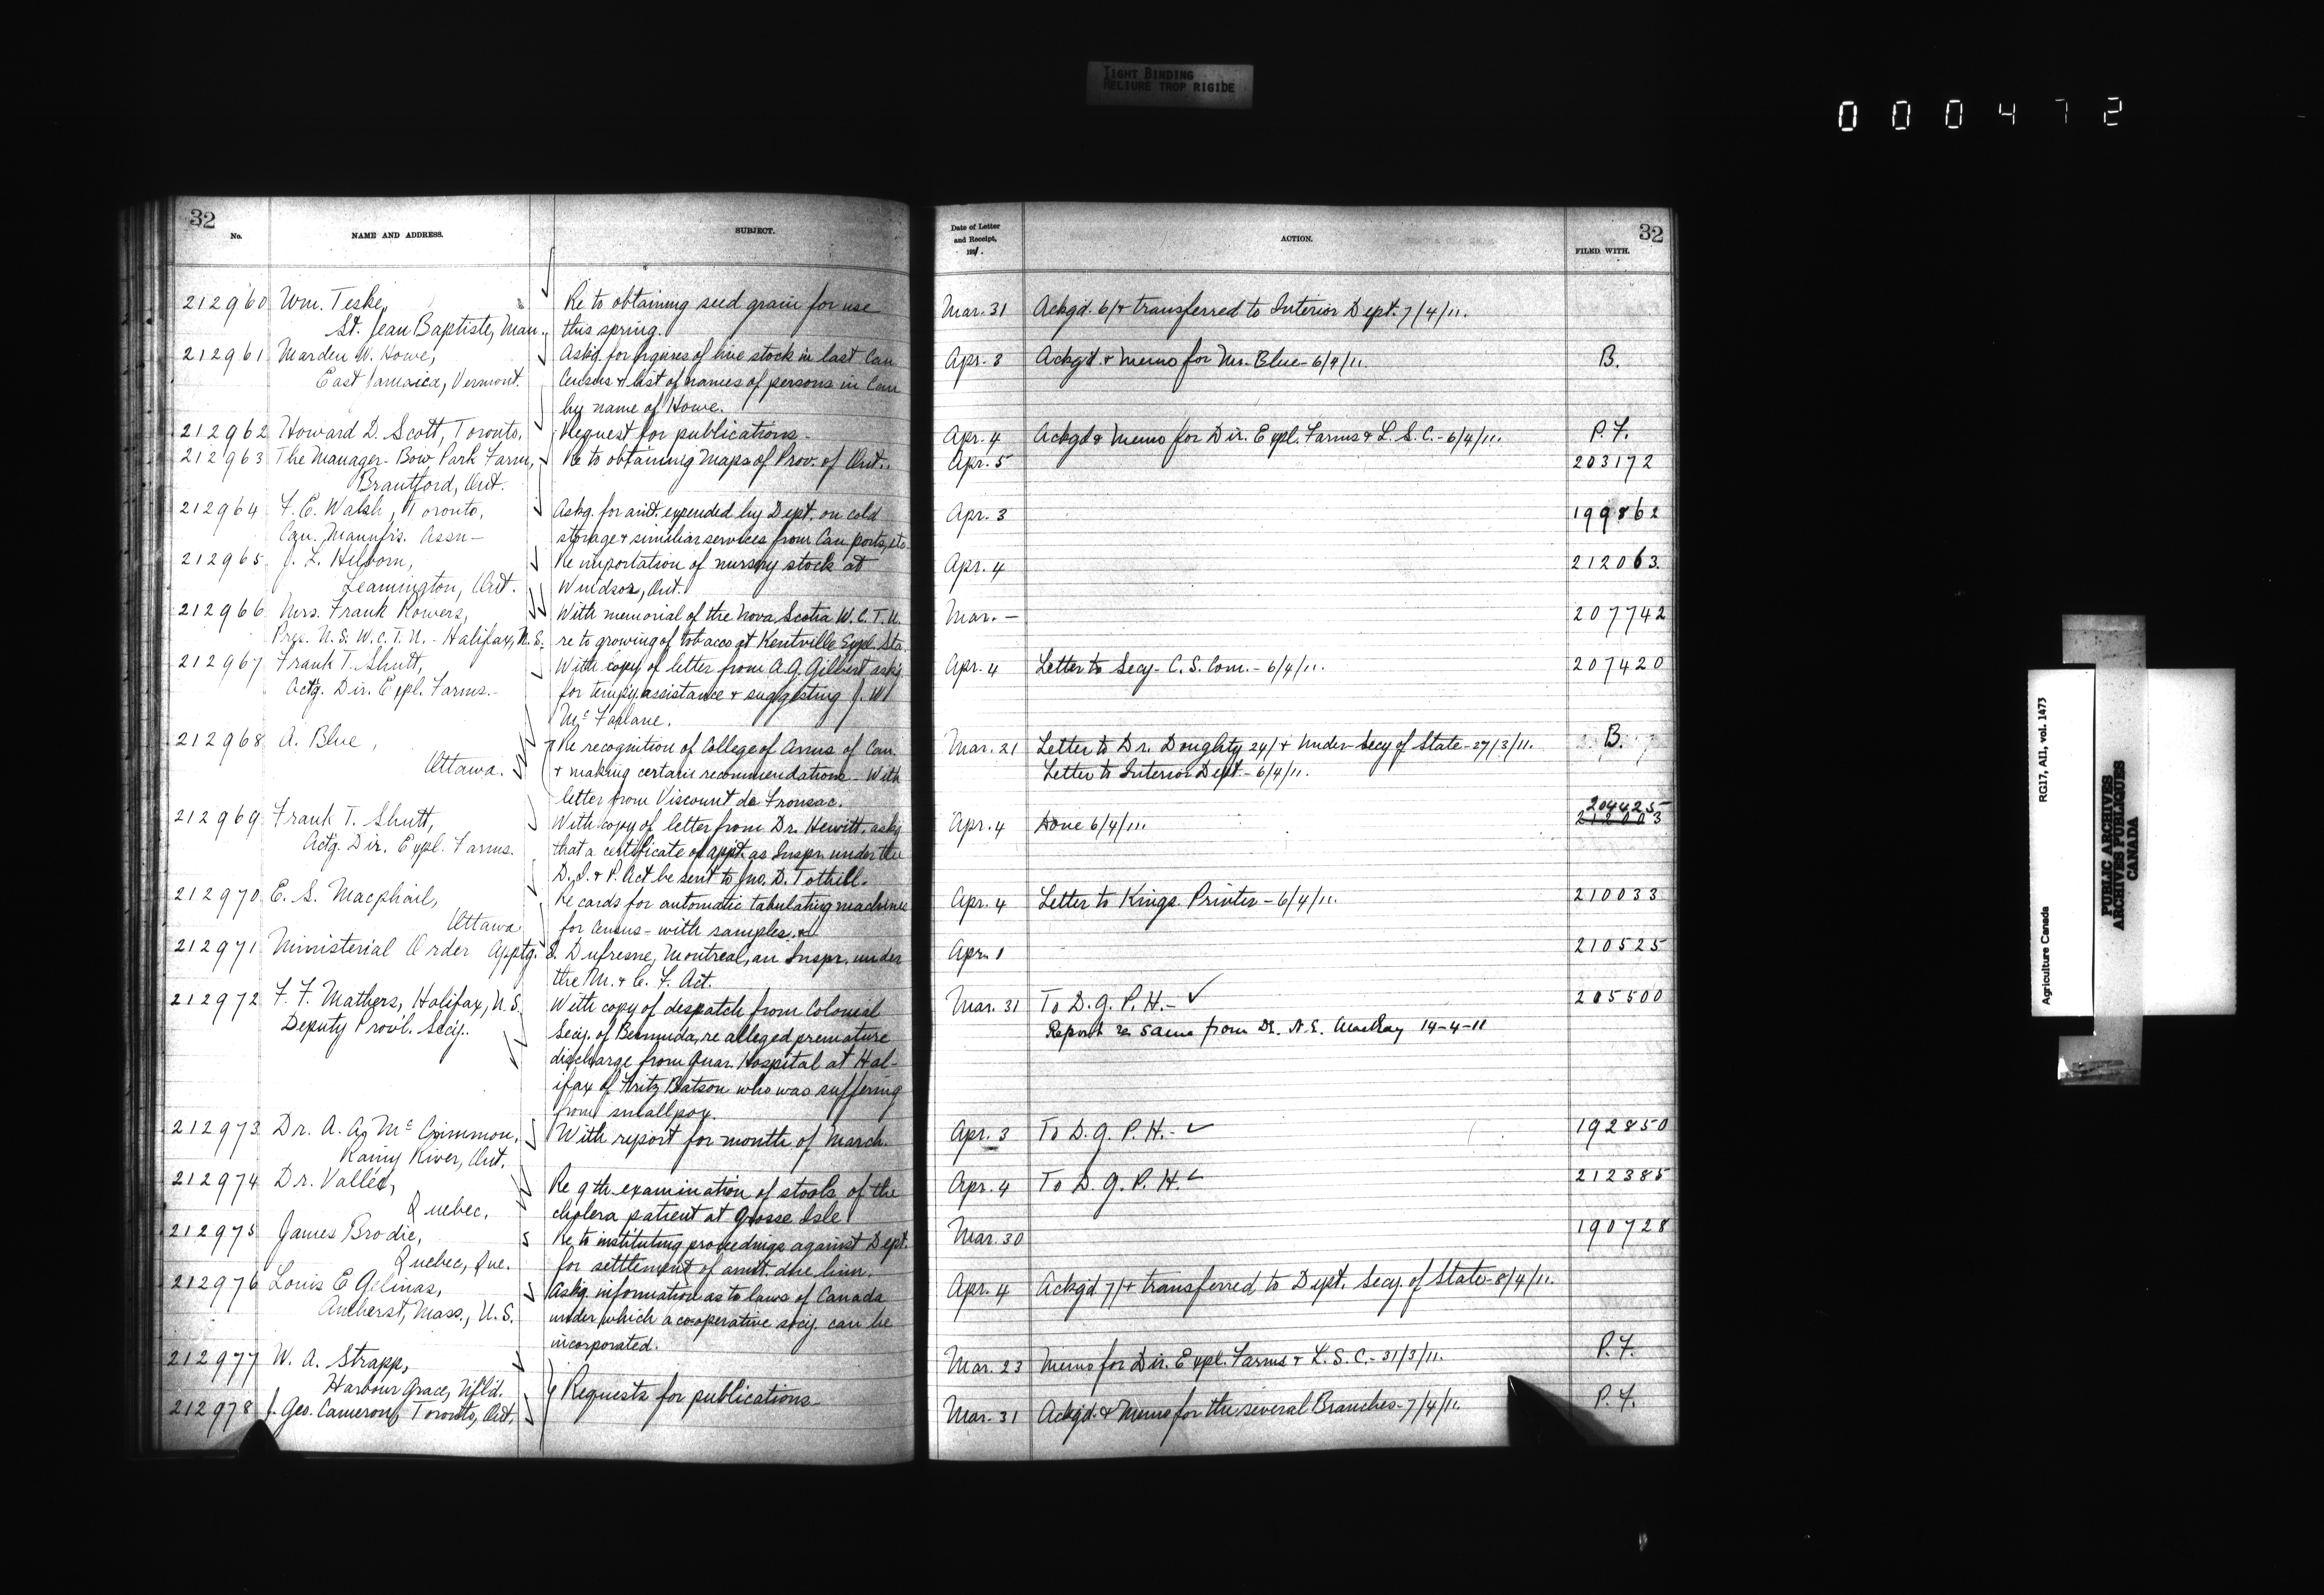 TIGHT BINDING
RELIURE TROP RIGIDE
000472
32
No. NAME AND ADDRESS. SUBJECT.
212960 Wm. Teske, Re to obtaining seed grain for use
St. Jean Baptiste, Man., this spring.
212961 Marden W. Howe, Askg. for figures of live stock in last Can
East Jamaica, Vermont. Census & list of names of persons in Can
by name of Howe.
212962 Howard D. Scott, Toronto. Request for publications.
212963 The Manager - Bow Park Farm, Re to obtaining Maps of Prov. of Ont.
Brantford, Ont.
212964 F. C. Walsh, Toronto, Askg. for amt. expended by Dept. on cold
Can. Manufrs. Assn - storage & similiar services from Can ports, etc
212965 J. L. Hilborn, Re importation of nursery stock at
Leamington, Ont. Windsor, Ont.
212966 Mrs. Frank Powers, With memorial of the Nova Scotia W. C. T. U.
Pres. N. S. W. C. T. U. - Halifax, N. S. re to growing of tobacco at Kentville Expl. Sta
212967 Frank T. Shutt, With copy of letter from A. G. Gilbert askg
Actg. Dir. Expl. Farms. - for tempy assistance & suggesting J. W
Mc Farlane.
212968 A. Blue, Re recognition of College of Arms of Can.
Ottawa. & making certain recommendations - With
letter from Viscount de Fronsac.
212969 Frank T. Shutt, With copy of letter from Dr. Hewitt, askg
Actg. Dir. Expl. Farms. that a certificate of appt. as Inspr. under the
D. I. & P. Act be sent to Jno. D. Tothill.
212970 E. S. Macphail, Re cards for automatic tabulating machines
Ottawa for Census - with samples.
212971 Ministerial Order Apptg. S. Dufresne, Montreal, an Inspr. under
the M. & C. F. Act.
212972 F. F. Mathers, Halifax, N. S. With copy of despatch from Colonial
Deputy Provl. Secy. Secy. of Bermuda, re alleged premature
discharge from Quar. Hospital at Hal-
ifax of Fritz Batson who was suffering
from smallpox.
212973 Dr. A. A. Mc Crimmon, With report for month of March.
Rainy River, Ont.
212974 Dr. Vallée, Re 9th examination of stools of the
Quebec. cholera patient at Grosse Isle
212975 James Brodie, Re to instituting proceedings against Dept.
Quebec, Que. for settlement of amt. due him.
212976 Louis E Gelinas, Askg. information as to laws of Canada
Amherst, Mass., U. S. under which a co-operative socy. can be
incorporated.
212977 W. A. Strapp,
Harbour Grace, Nfld. Requests for publications
212978 J. Geo. Cameron, Toronto, Ont.
32
Date of Letter and Receipt, 1911. ACTION. FILED WITH.
Mar. 31 Ackgd. 6/ & transferred to Interior Dept. 7/4/11.
Apr. 3 Ackgd & Memo for Mr. Blue - 6/4/11. B.
Apr. 4 Ackgd & Memo for Dir. Expl. Farms & L. S. C. - 6/4/11. P. F.
Apr. 5 203172
Apr. 3 199862
Apr. 4 212063
Mar. - 207742
Apr. 4 Letter to Secy - C. S. Com. - 6/4/11. 207420
Mar. 21 Letter to Dr. Doughty 24/ & Under-Secy of State - 27/3/11. B.
Letter to Interior Dept - 6/4/11.
204425
Apr. 4 Done 6/4/11. 212003
Apr. 4 Letter to Kings Printer - 6/4/11. 210033
Apr. 1 210525
Mar. 31 To D. G. P. H. - 205500
Report re same from Dr. N. E. MacKay 14-4-11
Apr. 3 To D. G. P. H. - 192850
Apr. 4 To D. G. P. H. 212385
Mar. 30 190728
Apr. 4 Ackgd 7/ & transferred to Dept. Secy. of State - 8/4/11.
Mar. 23 Memo for Dir. Expl. Farms & L. S. C. - 31/3/11. P. F.
Mar. 31 Ackgd. & Memo for the several Branches - 7/4/11. P. F.
Agriculture Canada RG17, AI1, vol. 1473
PUBLIC ARCHIVES
ARCHIVES PUBLIQUES
CANADA